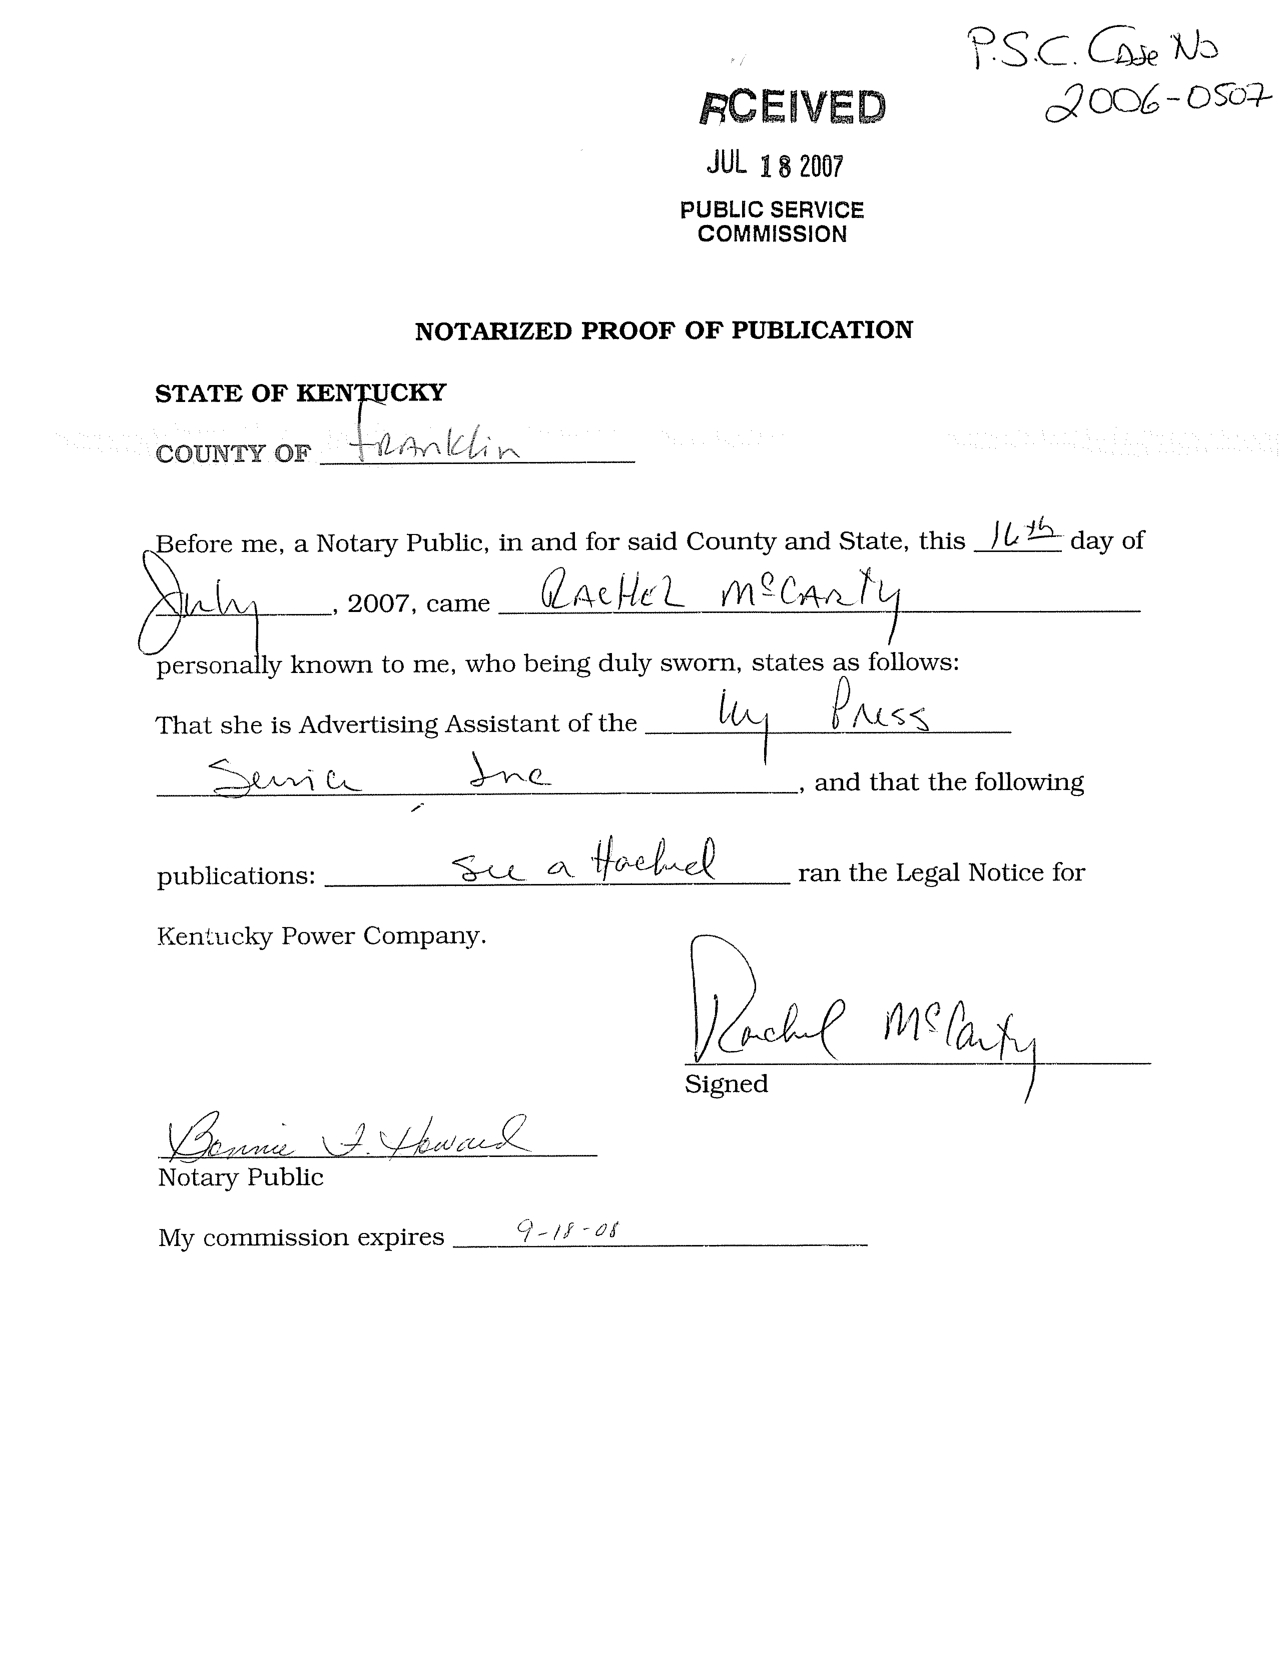 P.S.C. Case No
2006-0507
RCEIVED
JUL 18 2007
PUBLIC SERVICE
COMMISSION
NOTARIZED PROOF OF PUBLICATION
STATE OF KENTUCKY
COUNTY OF Franklin
Before me, a Notary Public, in and for said County and State, this 16th day of
July, 2007, came Rachel McCarty
personally known to me, who being duly sworn, states as follows:
That she is Advertising Assistant of the Ky Press
Service Inc, and that the following
publications: see attached ran the Legal Notice for
Kentucky Power Company.
Rachel McCarty
Signed
Bonnie J. Howard
Notary Public
My commission expires 9-18-08